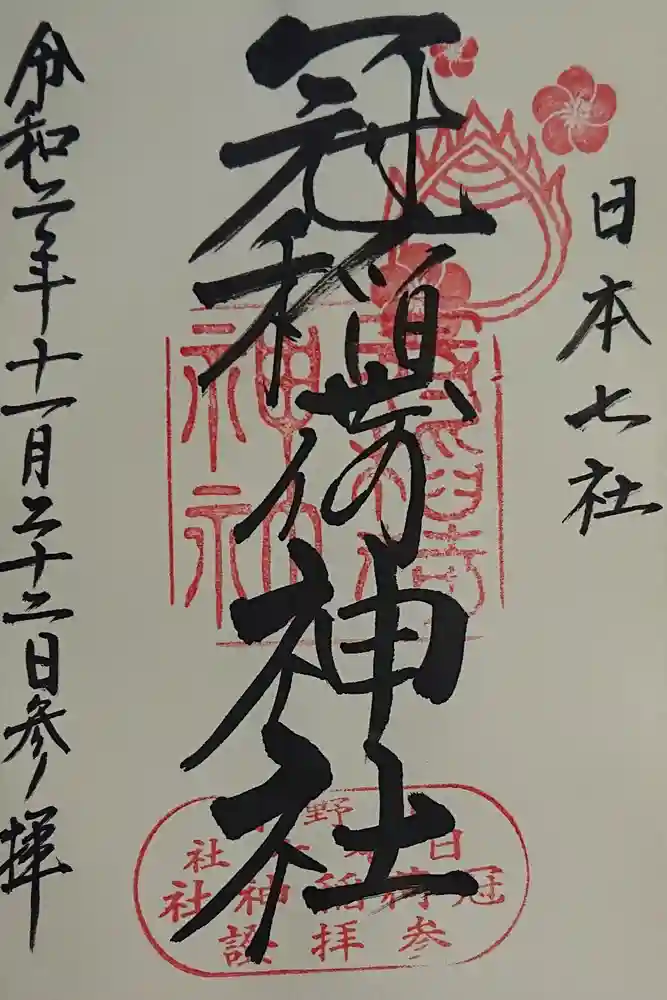 日本七社
冠稲荷神社
令和二年十一月二十二日参拝
神社
野
日本七社
冠稲荷神社
参拝證